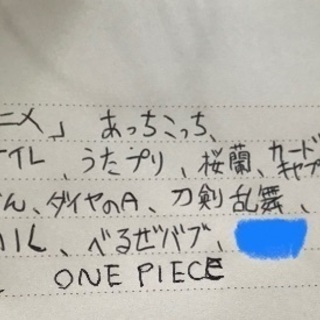 ニメ」 あっちこっち、
テイル、うたプリ、桜蘭、カードキャプ
ん、ダイヤのA、刀剣乱舞、
べるぜバブ、
ONE PIECE